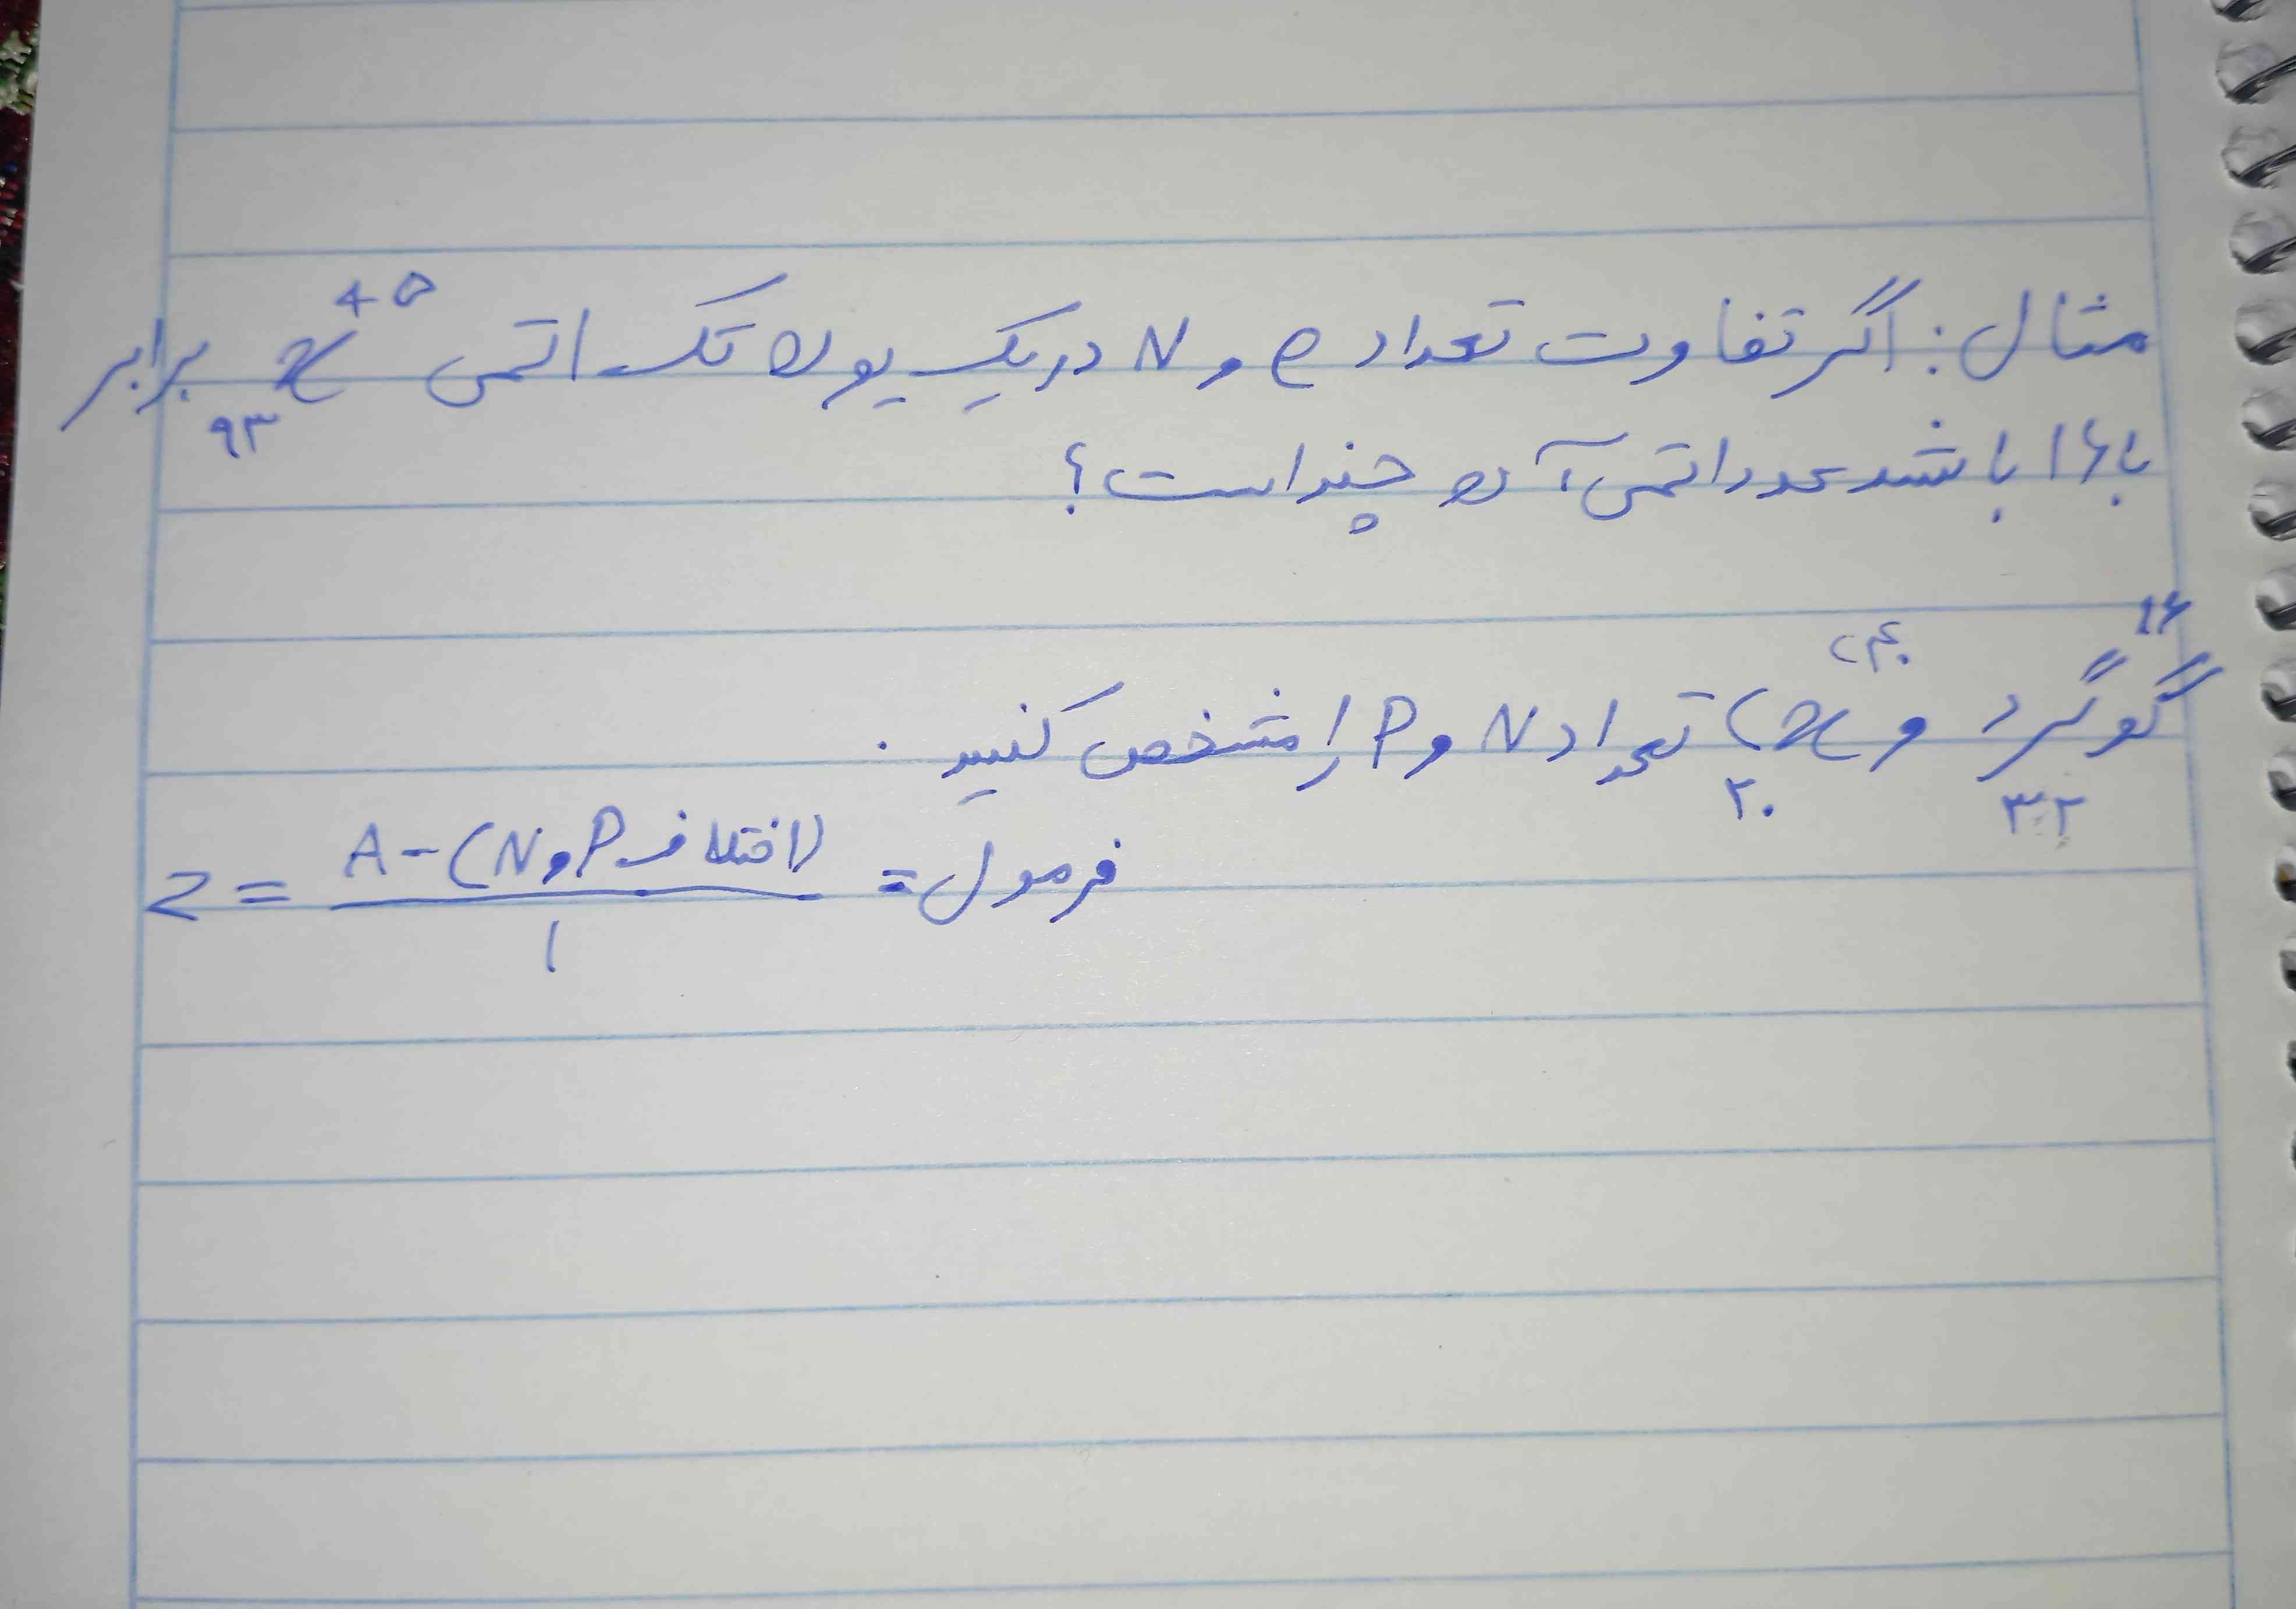 مثال: اگر تفاوت تعداد e و N در یک یون تک اتمی X +۵ ۹۳ برابر
با ۱۶ باشد عدد اتمی آن چند است؟
۱۶ ۳۲ گوگرد و X ۲۰ تعداد N و P را مشخص کنید.
فرمول = Z = A - (N و P اختلاف) / ۱